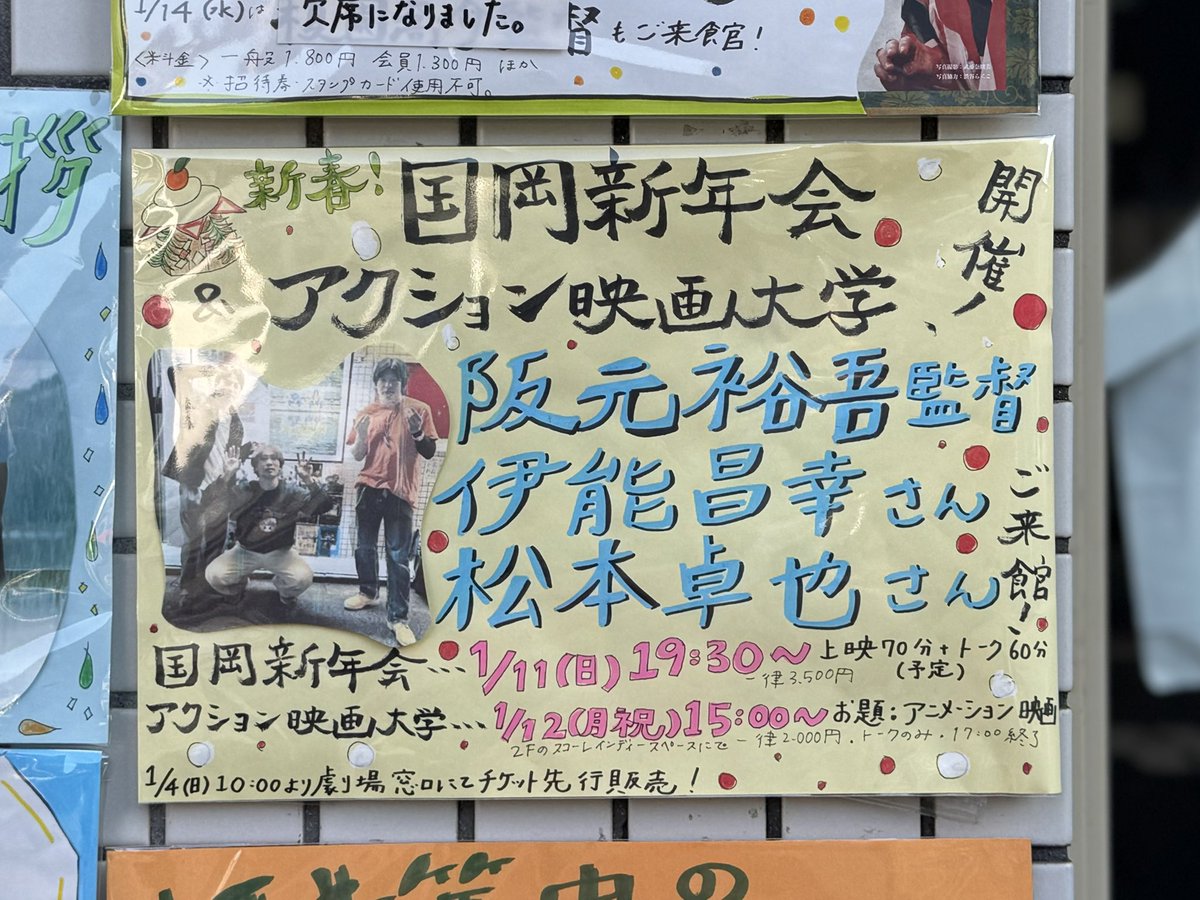 1/14(水)は 欠席になりました。
督もご来館!
〈料金〉一般1.800円 会員1.300円 ほか
※招待券・スタンプカード使用不可。
拶
新春!
国岡新年会
& アクション映画大学、
開催!
阪元裕吾監督
伊能昌幸さん
松本卓也さん
ご来館!
国岡新年会... 1/11(日) 19:30〜 上映70分+トーク60分
(予定)
一律3.500円
アクション映画大学... 1/12(月祝)15:00〜 お題:アニメーション映画
2Fのスコーレインディースペースにて 一律2.000円.トークのみ.17:00終了
1/4(日)10:00より劇場窓口にてチケット先行販売!